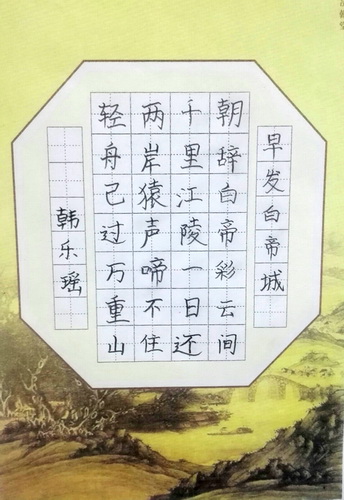 早发白帝城
朝辞白帝彩云间
千里江陵一日还
两岸猿声啼不住
轻舟己过万重山
韩乐瑶